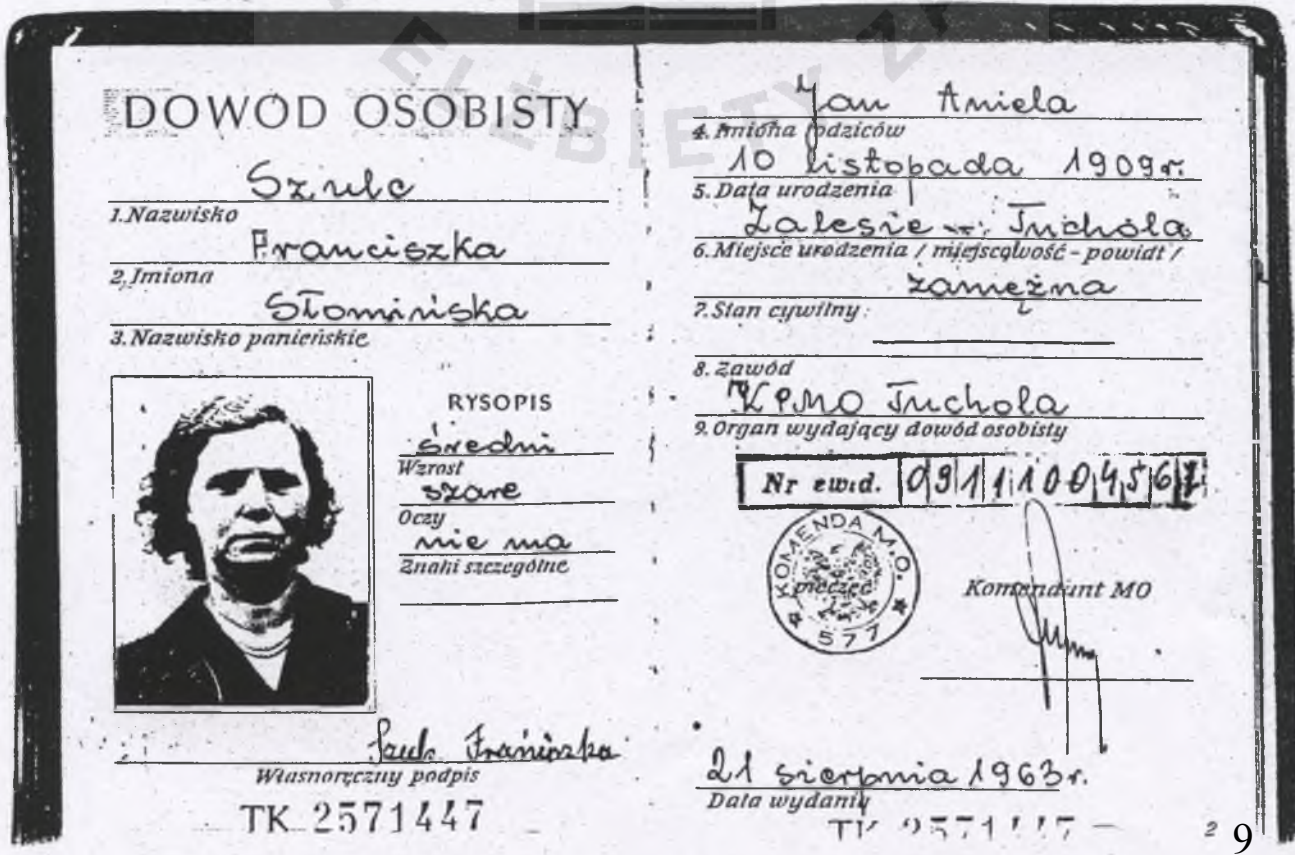 ELŻBIETY
DOWÓD OSOBISTY
Szulc
1. Nazwisko
Franciszka
2. Imiona
Słomińska
3. Nazwisko panieńskie
RYSOPIS
średni
Wzrost
szare
Oczy
nie ma
Znaki szczególne
Szulc Franciszka
Własnoręczny podpis
TK 2571447
Jan Aniela
4. Imiona rodziców
10 listopada 1909 r.
5. Data urodzenia
Zalesie - Tuchola
6. Miejsce urodzenia / miejscowość - powiat /
zamężna
7. Stan cywilny
8. Zawód
KPMO Tuchola
9. Organ wydający dowód osobisty
Nr ewid. 09111004567
KOMENDA M.O.
pieczęć
577
Komendant MO
21 sierpnia 1963 r.
Data wydania
TK 2571447
2
9